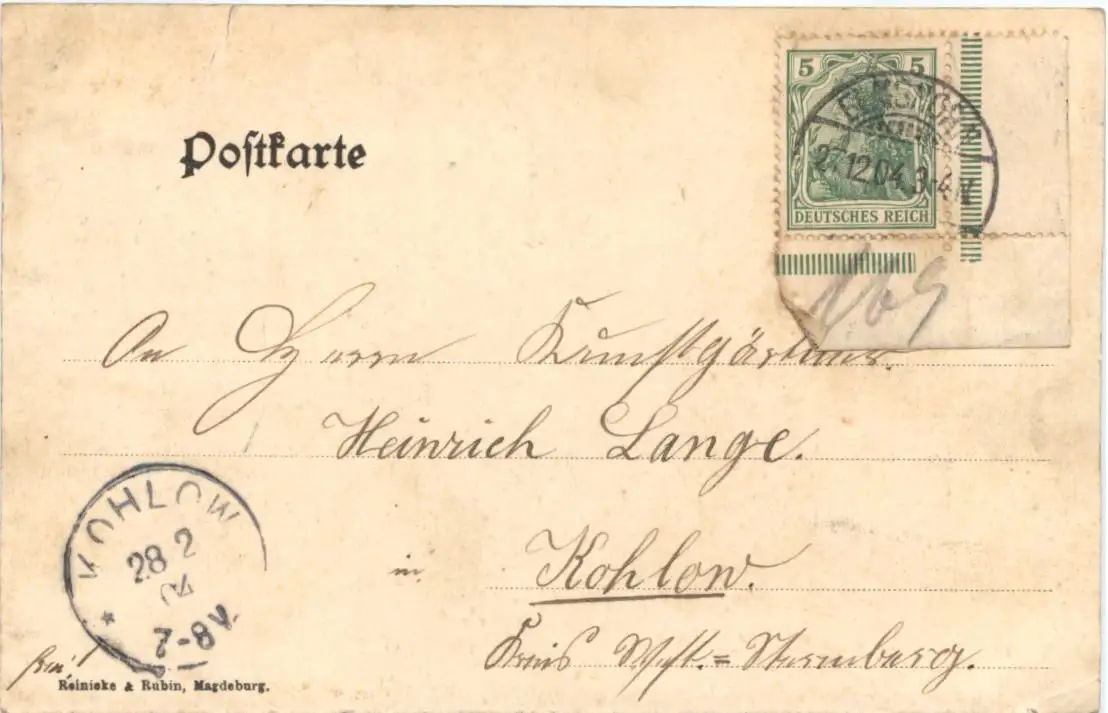 Postkarte
5 5
27.12.04. 3-4 N
DEUTSCHES REICH
169
An Herrn Kunstgärtner.
Heinrich Lange.
in Kohlow.
Kreis West.=Sternberg.
KOHLOW
28 2
04
7-8V.
frei!
Reinicke & Rubin, Magdeburg.